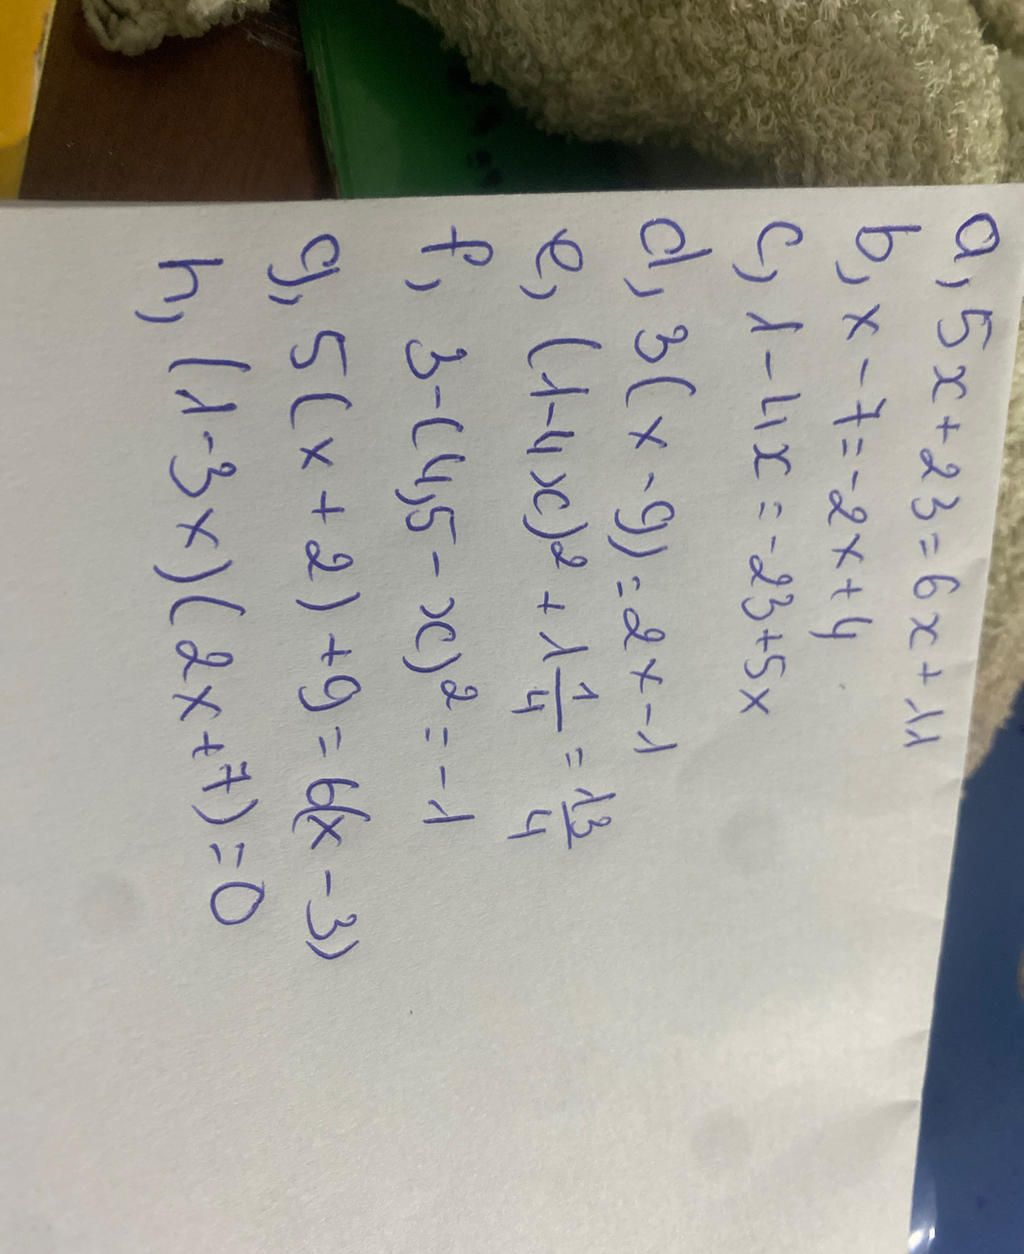 a, 5x+23=6x+11
b, x-7=-2x+4
c, 1-4x=-23+5x
d, 3(x-9)=2x-1
e, (1-4x)²+1 1/4=1 3/4
f, 3-(4,5-x)²=-1
g, 5(x+2)+9=6(x-3)
h, (1-3x)(2x+7)=0